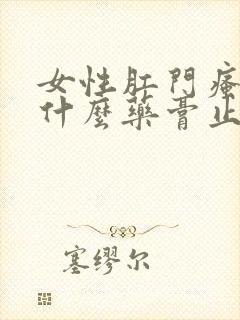 女性肛門瘙
什麼藥膏止
塞缪尔